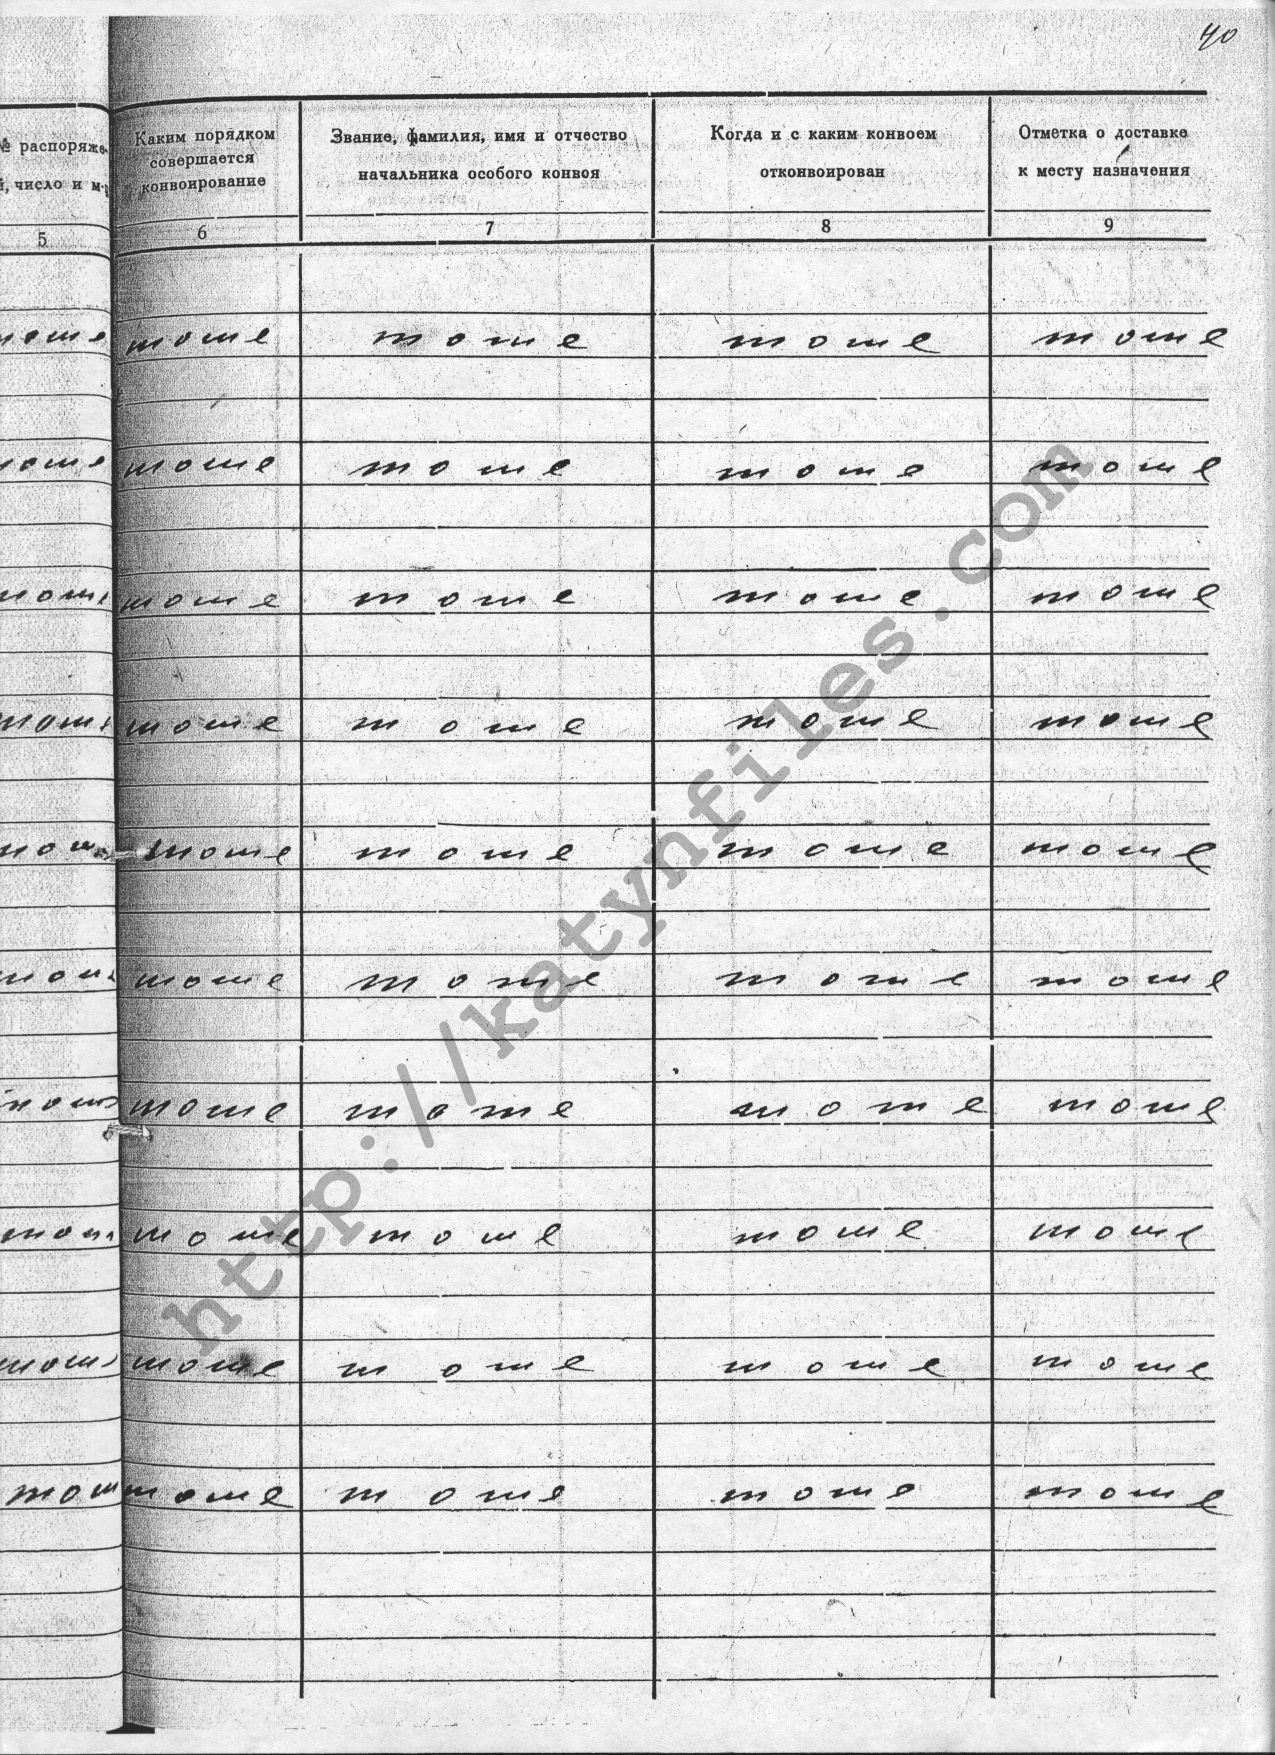 40
№ распоряже-
, число и м-ц
Каким порядком
совершается
конвоирование
Звание, фамилия, имя и отчество
начальника особого конвоя
Когда и с каким конвоем
отконвоирован
Отметка о доставке
к месту назначения
5 6 7 8 9
тоже тоже тоже тоже тоже
тоже тоже тоже тоже тоже
тоже тоже тоже тоже тоже
тоже тоже тоже тоже тоже
тоже тоже тоже тоже тоже
тоже тоже тоже тоже тоже
тоже тоже тоже тоже тоже
тоже тоже тоже тоже тоже
тоже тоже тоже тоже тоже
тоже тоже тоже тоже тоже
http://katynfiles.com